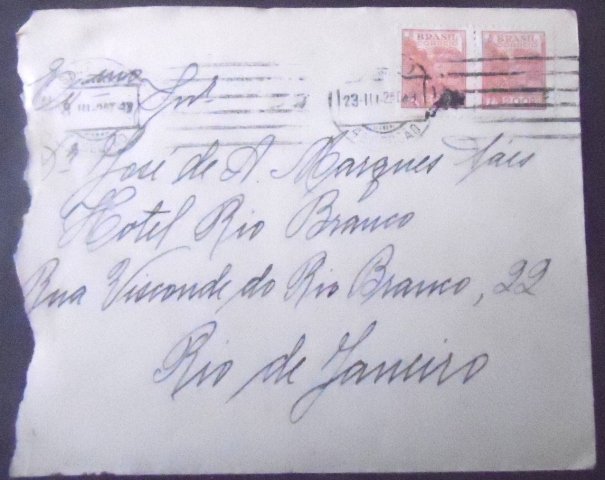 BRASIL CORREIO BRASIL CORREIO
23-III
Exmo Snr.
Dr José de A. Marques
Hotel Rio Branco
Rua Visconde do Rio Branco, 22
Rio de Janeiro